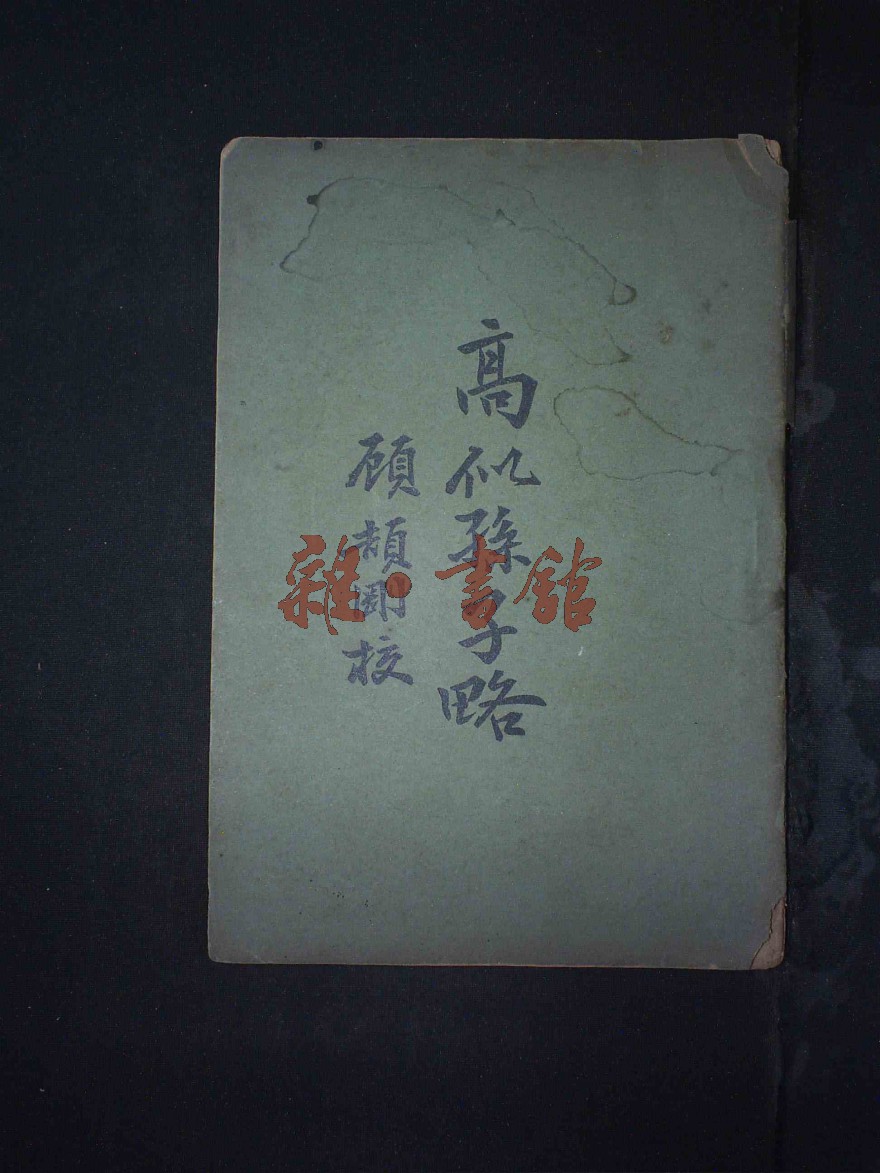 高似孫子略
顧頡剛校
雜·書館